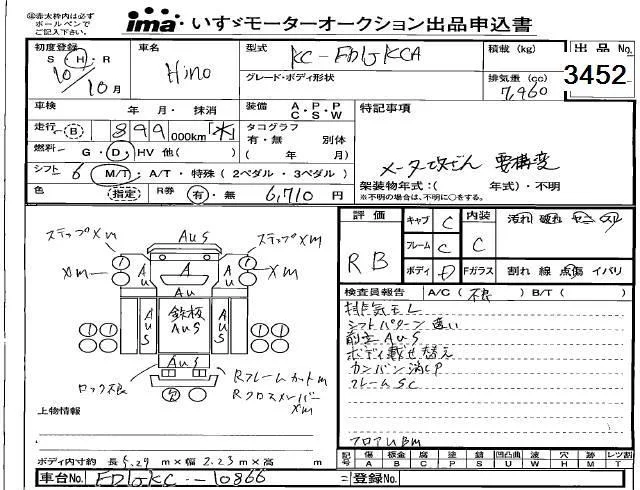 ㊟赤太枠内は必ず
ボールペンで
ご記入下さい。
ima いすゞモーターオークション出品申込書
初度登録 車名 型式 積載(kg) 出品No.
S・H・R Hino KC-FD1JKCA
10/10月 グレード・ボディ形状 排気量(cc) 3452
7,960
車検 年 月・ 抹消 装備 A・P・P 特記事項
C・S・W
走行 (B) 899,000km タコグラフ
有・無 別体
燃料 G・D・HV 他( ) ( 年 月) メーター改ざん 要構変
シフト 6 M/T・A/T・特殊(2ペダル・3ペダル) 架装物年式:( 年式)・不明
色 (指定) R券 有・無 6,710円 ※不明の場合は、不明に○をする。
評価 キャブ C 内装 汚れ 破れ
RB フレーム C C
ボディ D Fガラス 割れ 線 点傷 イバリ
検査員報告 A/C(不良) B/T( )
排気モレ
シフトパターン違い
前立AUS
ボディ載せ替え
カンバン消しP
フレームSC
フロアUBM
ステップXM AUS ステップXM
XM A U A A U XM
AU
AUS 鉄板 AUS AUS
AUS
ロック不良 RフレームカットM
Rクロスメンバー
XM
上物情報
ボディ内寸約 長 5.29 m×幅 2.23 m×高 m
記号 傷 A 板金 B 腐 C 塗 P 錆 S 凹凸曲 U 波 W 穴 H 跡 M レツ割 T
車台No. FD1JKC-10866 =登録No.